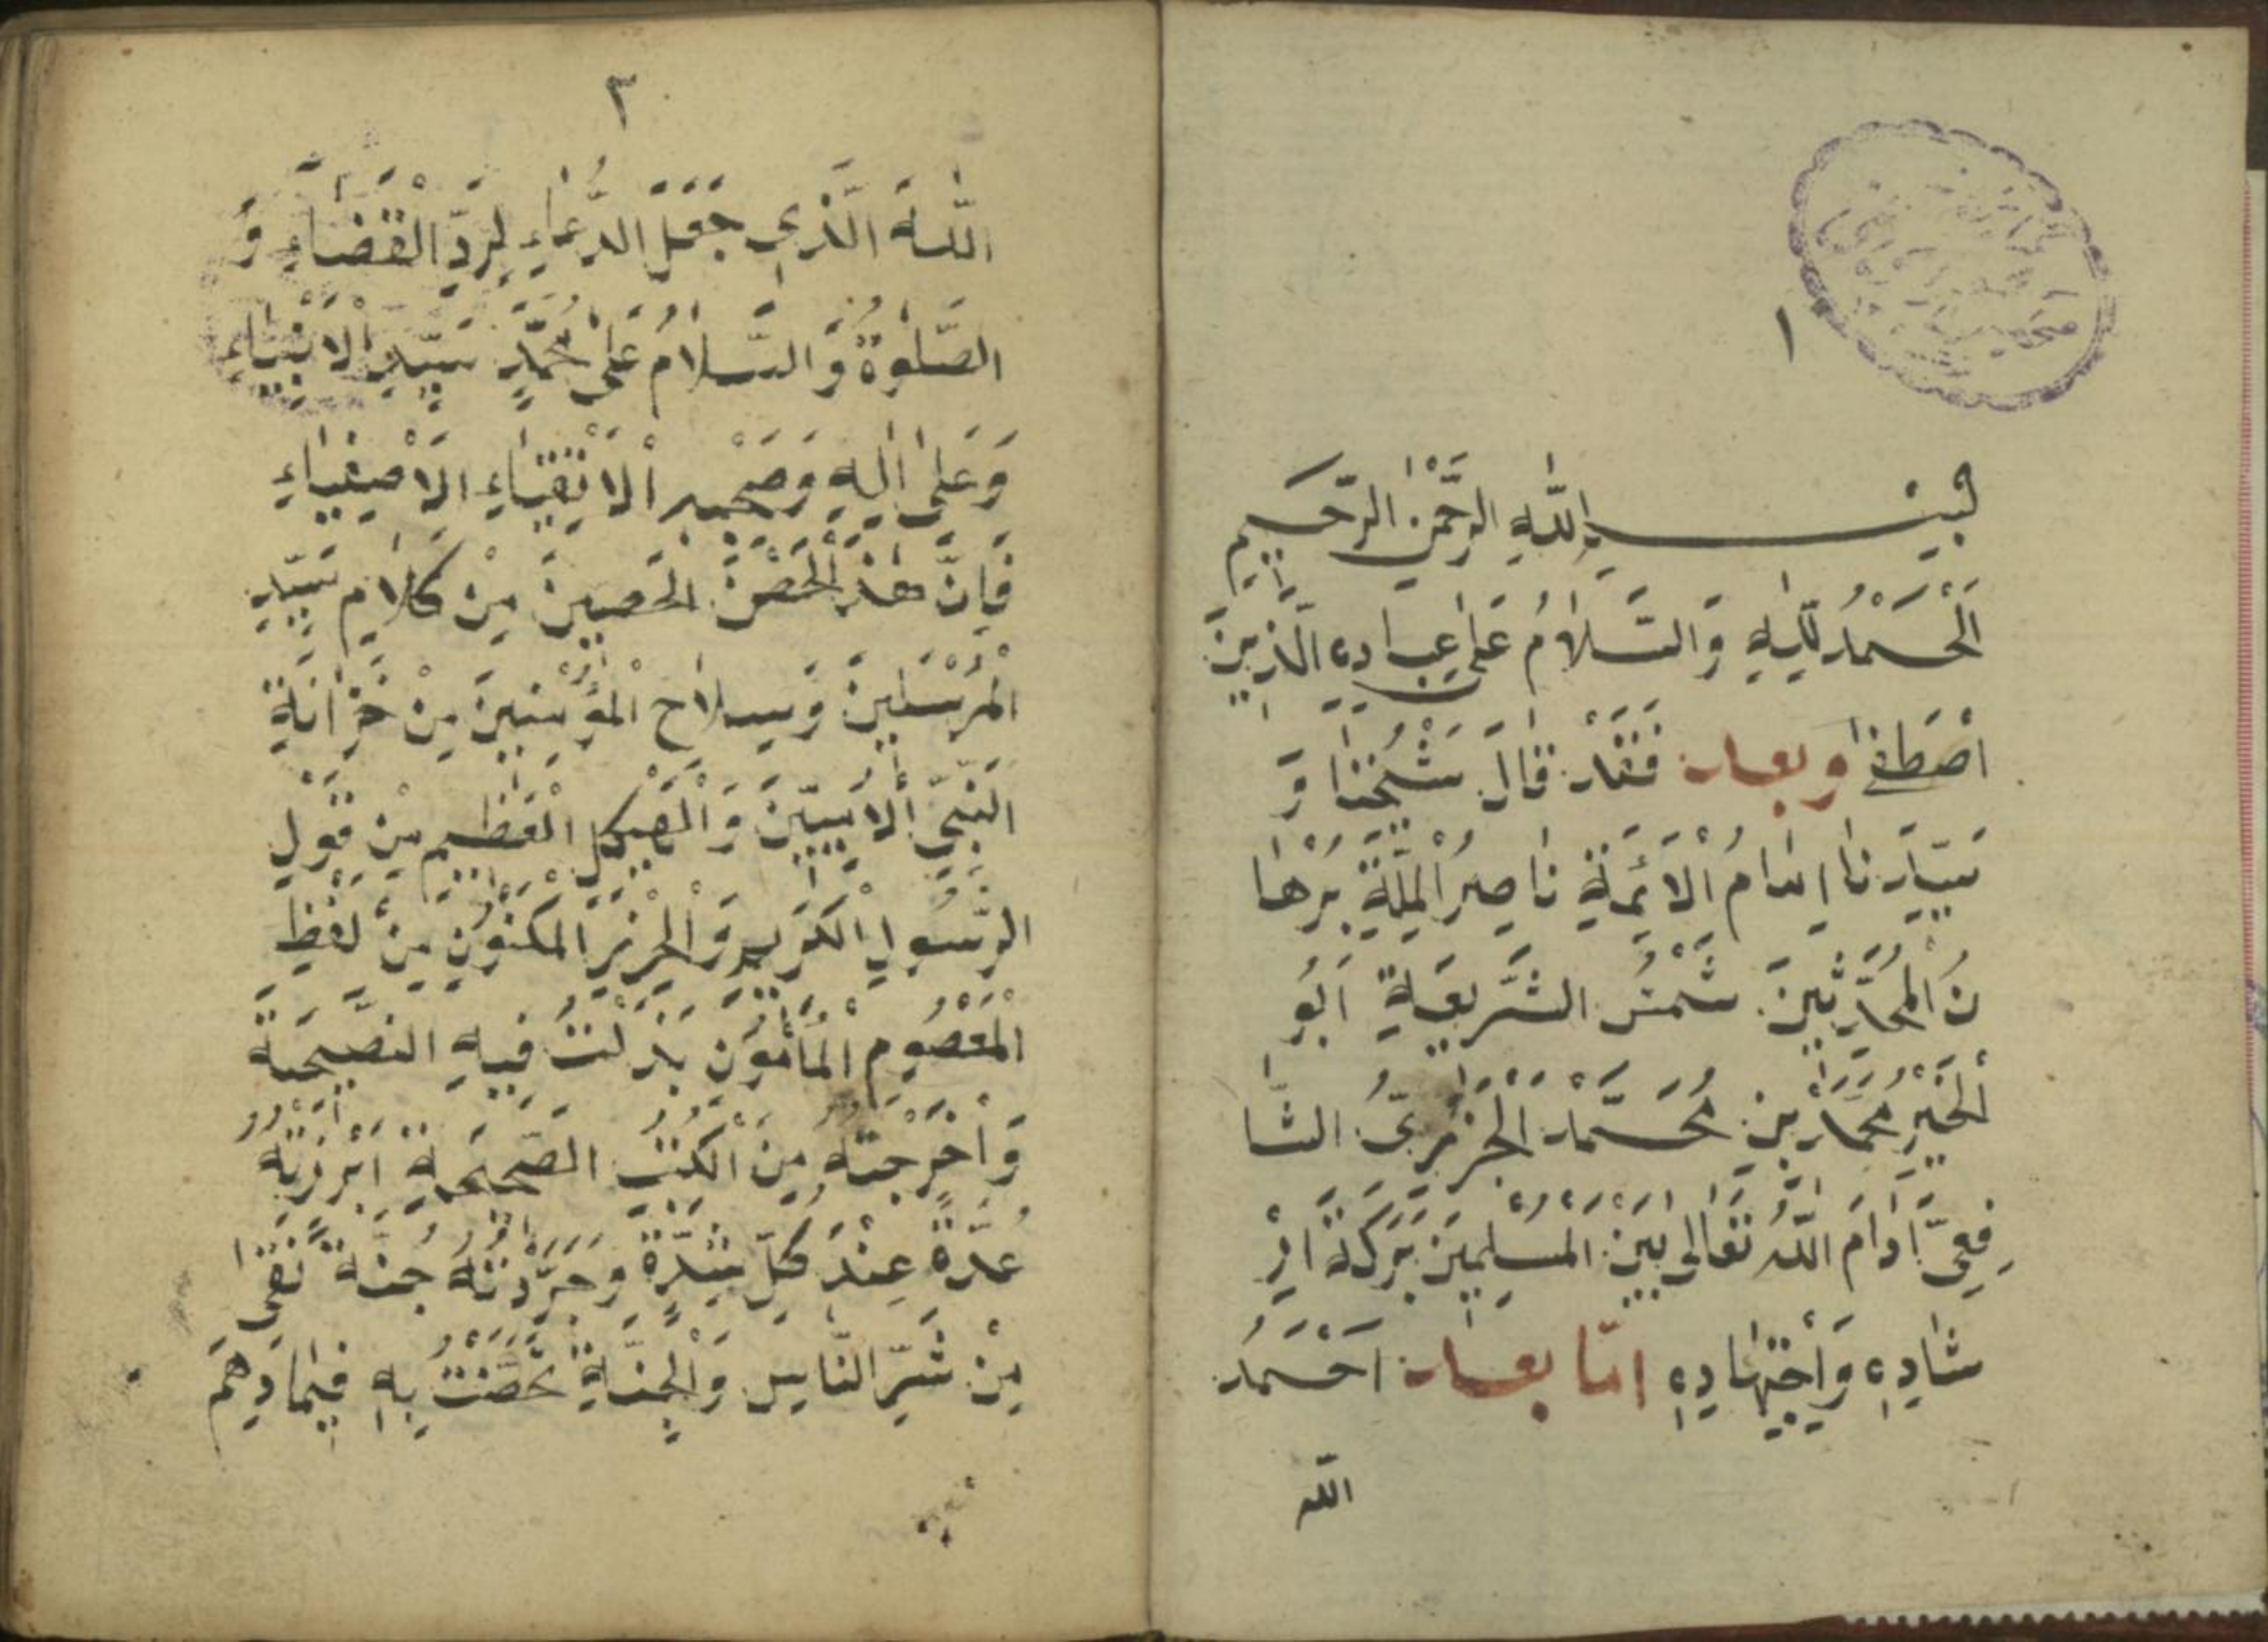 ١
بِسْمِ اللّٰهِ الرَّحْمٰنِ الرَّحِيمِ
اَلْحَمْدُ لِلّٰهِ وَالسَّلَامُ عَلٰى عِبَادِهِ الَّذِينَ
اصْطَفٰى وبعد فَقَدْ قَالَ شَيْخُنَا وَ
سَيِّدَنَا اِمَامُ الْاَئِمَّةِ نَاصِرُ الْمِلَّةِ بُرْهَا
نُ الْمُحَدِّثِينَ شَمْسُ الشَّرِيعَةِ اَبُو
الْخَيْرِ مُحَمَّدْ بِنْ مُحَمَّدْ الْجَزَرِيُّ الشَّا
فِعِيُّ اَدَامَ اللّٰهُ تَعَالٰى بَيْنَ الْمُسْلِمِينَ بَرَكَةَ اِرْ
شَادِهِ وَاجْتِهَادِهِ امّا بعد اَحْمَدُ
الله
٢
اللّٰهَ الَّذِي جَعَلَ الدُّعَاءِ لِرَدِّ الْقَضَاءِ وَ
الصَّلٰوةُ وَالسَّلَامُ عَلٰى مُحَمَّدٍ سَيِّدِ الْاَنْبِيَاءِ
وَعَلٰى اٰلِهِ وَصَحْبِهِ الْاَتْقِيَاءِ الْاَصْفِيَاءِ
فَاِنَّ هٰذَ الْحِصْنَ الْحَصِينَ مِنْ كَلَامِ سَيِّدِ
الْمُرْسَلِينَ وَسِلَاحَ الْمُؤْمِنِينَ مِنْ خَزَانَةِ
النَّبِيِّ الْاَمِينَ وَالْهَيْكَلِ الْعَظِيمِ مِنْ قَوْلِ
الرَّسُولِ الْكَرِيمِ وَالْحِرْزَ الْمَكْنُونِ مِنْ لَفْظِ
الْمَعْصُومِ الْمَأْمُونِ بَذَلْتُ فِيهِ النَّصِيحَةَ
وَاَخْرَجْتُهُ مِنَ الْكُتُبِ الصَّحِيحَةِ اَبْرَزْتُهُ
عُدَّةً عِنْدَ كُلِّ شِدَّةٍ وَجَرَّدْتُهُ جُنَّةً تَقِى
مِنْ شَرِّ النَّاسِ وَالْجِنَّةِ تَحَصَّنْتُ بِهِ فِيمَا دَهِمَ